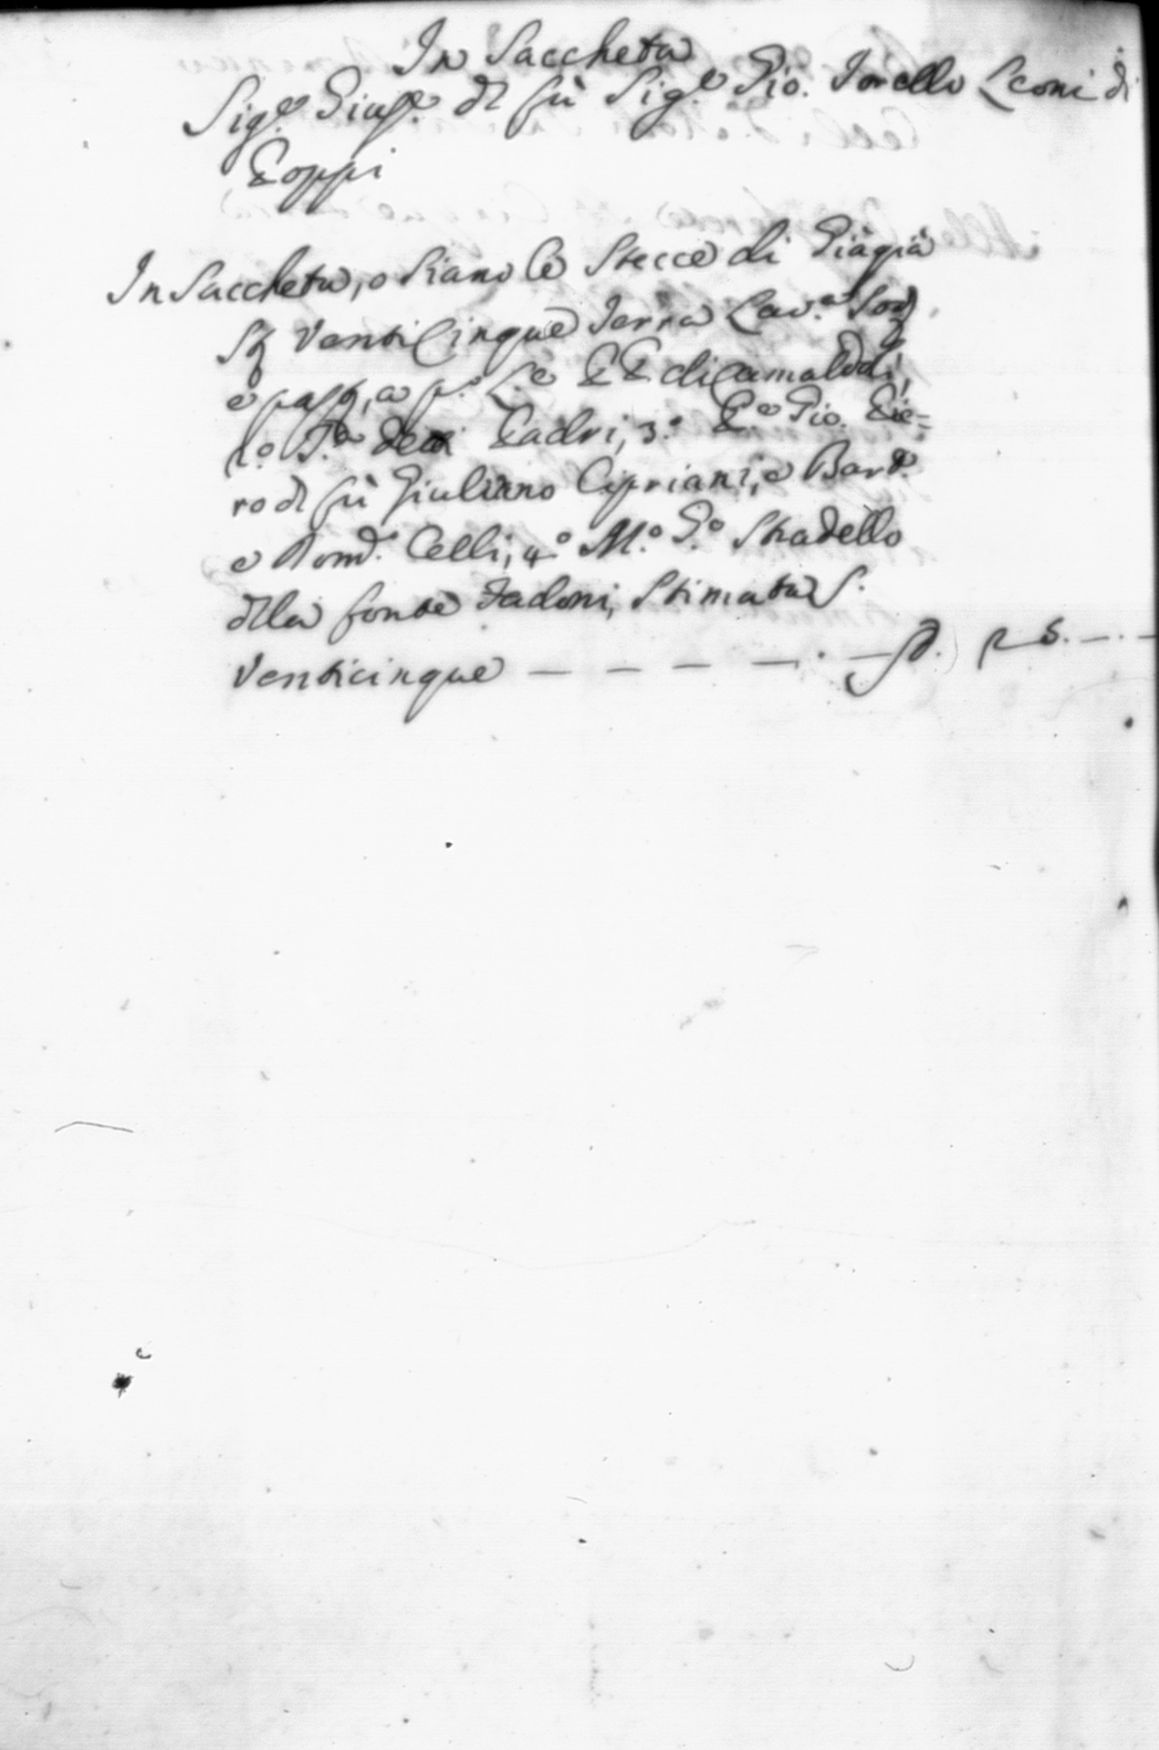 In Saccheta
Sig.e Gius.e dl fù Sig.e Gio. Torello Leoni di
Poppi
In Saccheta, o siano le Stecce di Piàgià
St Venticinque Terra Lav.a Sod
e past, a p.o L.e PP di Camaldoli,
2.o S.a detti Padri, 3.o P.e Gio. Pie=
ro dl fù Giuliano Cipriani, e Bard.
e Dom.o Celli, 4.o M.o S.o Stradello
dlla fonte Fadoni, Stimata S.
Venticinque — — — — . — S. 25. — . —